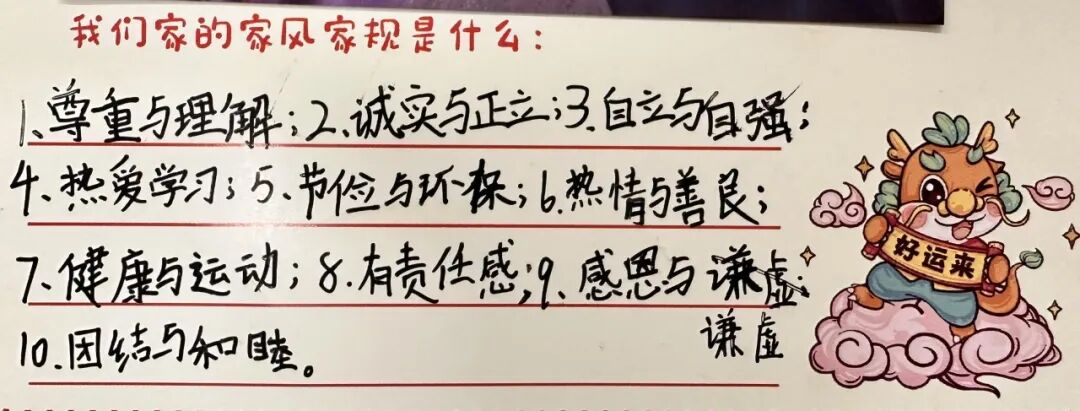 我们家的家风家规是什么：
1、尊重与理解；2、诚实与正立；3、自立与自强；
4、热爱学习；5、节俭与环保；6.热情与善良；
7、健康与运动；8.有责任感；9、感恩与谦虚；
谦虚
10.团结与和睦。
好运来